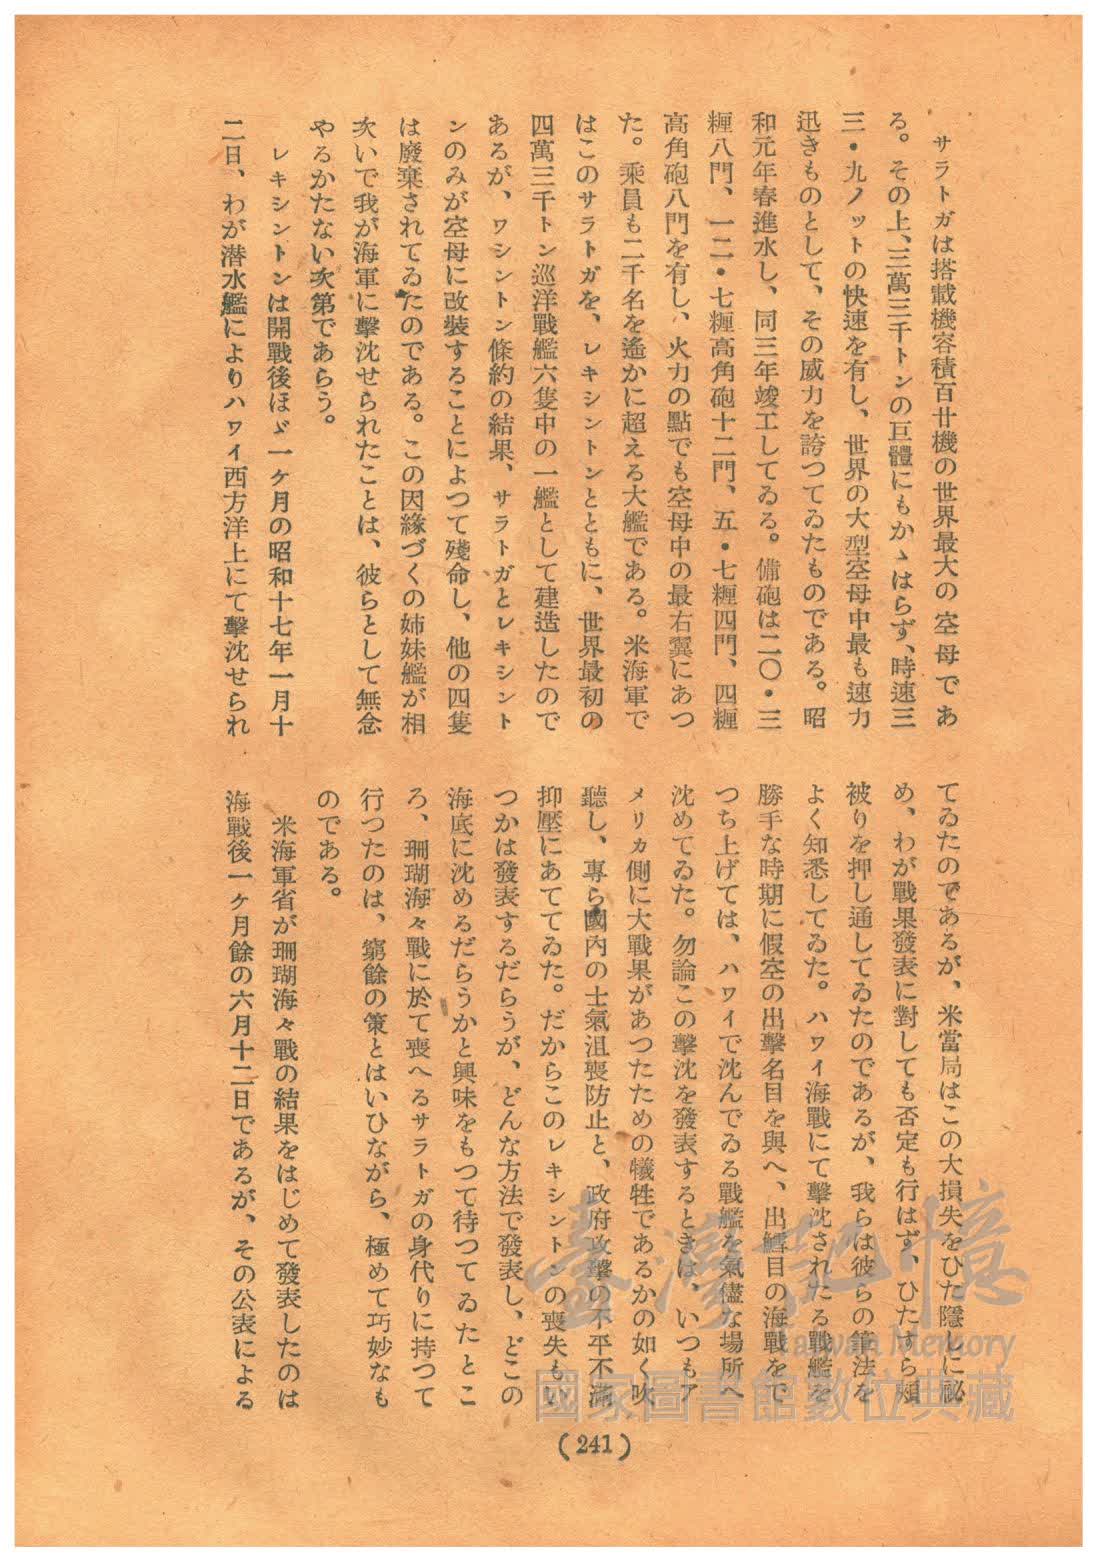 サラトガは搭載機容積百廿機の世界最大の空母であ
る。その上、三萬三千トンの巨體にもかゝはらず、時速三
三・九ノットの快速を有し、世界の大型空母中最も速力
迅きものとして、その威力を誇つてゐたものである。昭
和元年春進水し、同三年竣工してゐる。備砲は二〇・三
糎八門、一二・七糎高角砲十二門、五・七糎四門、四糎
高角砲八門を有し、火力の點でも空母中の最右翼にあつ
た。乘員も二千名を遙かに超える大艦である。米海軍で
はこのサラトガを、レキシントンとともに、世界最初の
四萬三千トン巡洋戰艦六隻中の一艦として建造したので
あるが、ワシントン條約の結果、サラトガとレキシント
ンのみが空母に改裝することによつて殘命し、他の四隻
は廢棄されてゐたのである。この因緣づくの姉妹艦が相
次いで我が海軍に擊沈せられたことは、彼らとして無念
やるかたない次第であらう。
レキシントンは開戰後ほゞ一ケ月の昭和十七年一月十
二日、わが潜水艦によりハワイ西方洋上にて擊沈せられ
てゐたのであるが、米當局はこの大損失をひた隱しに祕
め、わが戰果發表に對しても否定も行はず、ひたすら頰
被りを押し通してゐたのであるが、我らは彼らの筆法を
よく知悉してゐた。ハワイ海戰にて擊沈されたる戰艦を
勝手な時期に假空の出擊名目を與へ、出鱈目の海戰をで
つち上げては、ハワイで沈んでゐる戰艦を氣儘な場所へ
沈めてゐた。勿論この擊沈を發表するときは、いつもア
メリカ側に大戰果があつたための犧牲であるかの如く吹
聽し、專ら國內の士氣沮喪防止と、政府攻擊の不平不滿
抑壓にあててゐた。だからこのレキシントンの喪失もい
つかは發表するだらうが、どんな方法で發表し、どこの
海底に沈めるだらうかと興味をもつて待つてゐたとこ
ろ、珊瑚海々戰に於て喪へるサラトガの身代りに持つて
行つたのは、窮餘の策とはいひながら、極めて巧妙なも
のである。
米海軍省が珊瑚海々戰の結果をはじめて發表したのは
海戰後一ケ月餘の六月十二日であるが、その公表による
(241)
臺灣記憶
Taiwan Memory
國家圖書館數位典藏